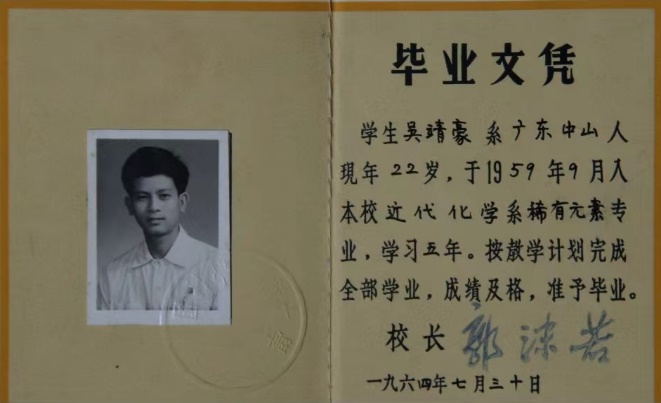 毕业文凭
学生吴靖豪系广东中山人
現年22岁，于1959年9月入
本校近代化学系稀有元素专
业，学习五年。按敎学计划完成
全部学业，成绩及格，准予毕业。
校长 郭沫若
一九六四年七月三十日